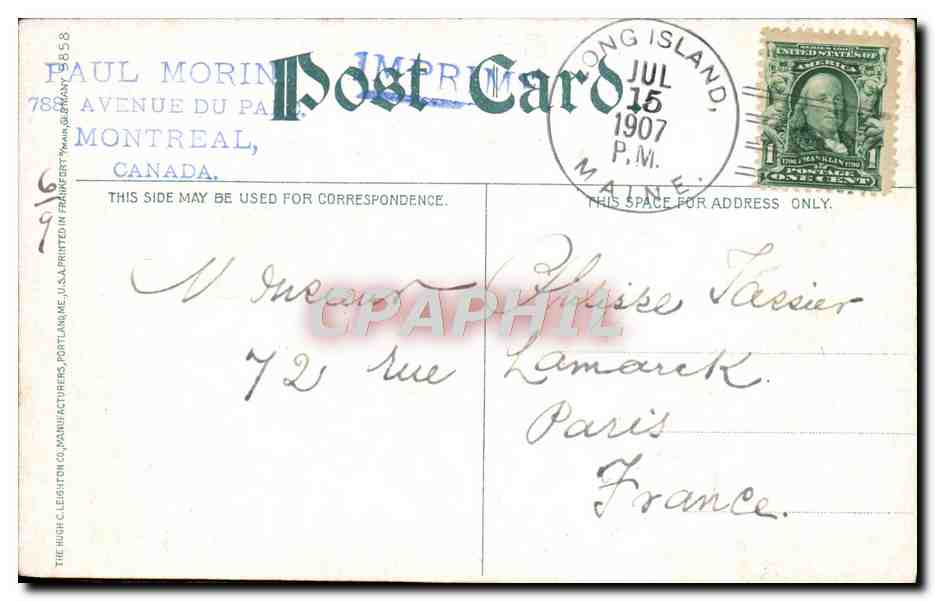 PAUL MORIN
788, AVENUE DU PA
MONTREAL,
CANADA.
Post Card.
IMPRIM
LONG ISLAND,
JUL
15
1907
P.M.
MAINE.
SERIES 1902
UNITED STATES OF
AMERICA
1 FRANKLIN 1
POSTAGE
ONE CENT
6/9
THIS SIDE MAY BE USED FOR CORRESPONDENCE.
THIS SPACE FOR ADDRESS ONLY.
Monsieur Tassier
72 rue Lamarck.
Paris
France.
CPAPHIL
THE HUGH C. LEIGHTON CO., MANUFACTURERS, PORTLAND, ME., U.S.A. PRINTED IN FRANKFORT a/MAIN, GERMANY 9858